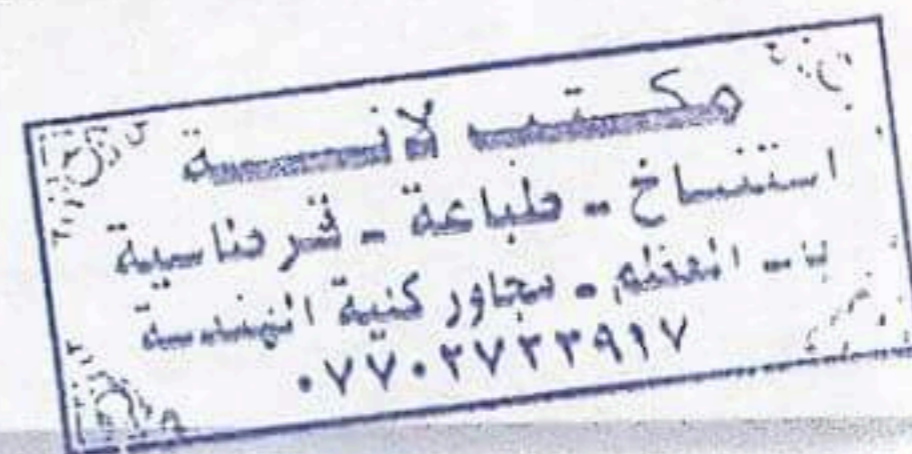 مكتب لانسة
استنساخ - طباعة - قرطاسية
ب - المعظم - مجاور كلية الهندسة
٠٧٧٠٢٧٢٣٩١٧